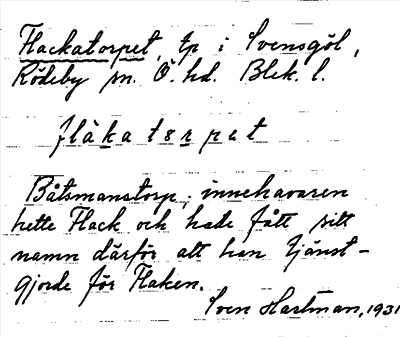 Flackatorpet, tp i Svensgöl,
Rödeby sn. Ö. hd. Blek. l.
flàkatɘrpet
Båtsmanstorp; innehavaren
hette Flack och hade fått sitt
namn därför att han tjänst-
gjorde för Flaken.
Sven Hartman, 1931